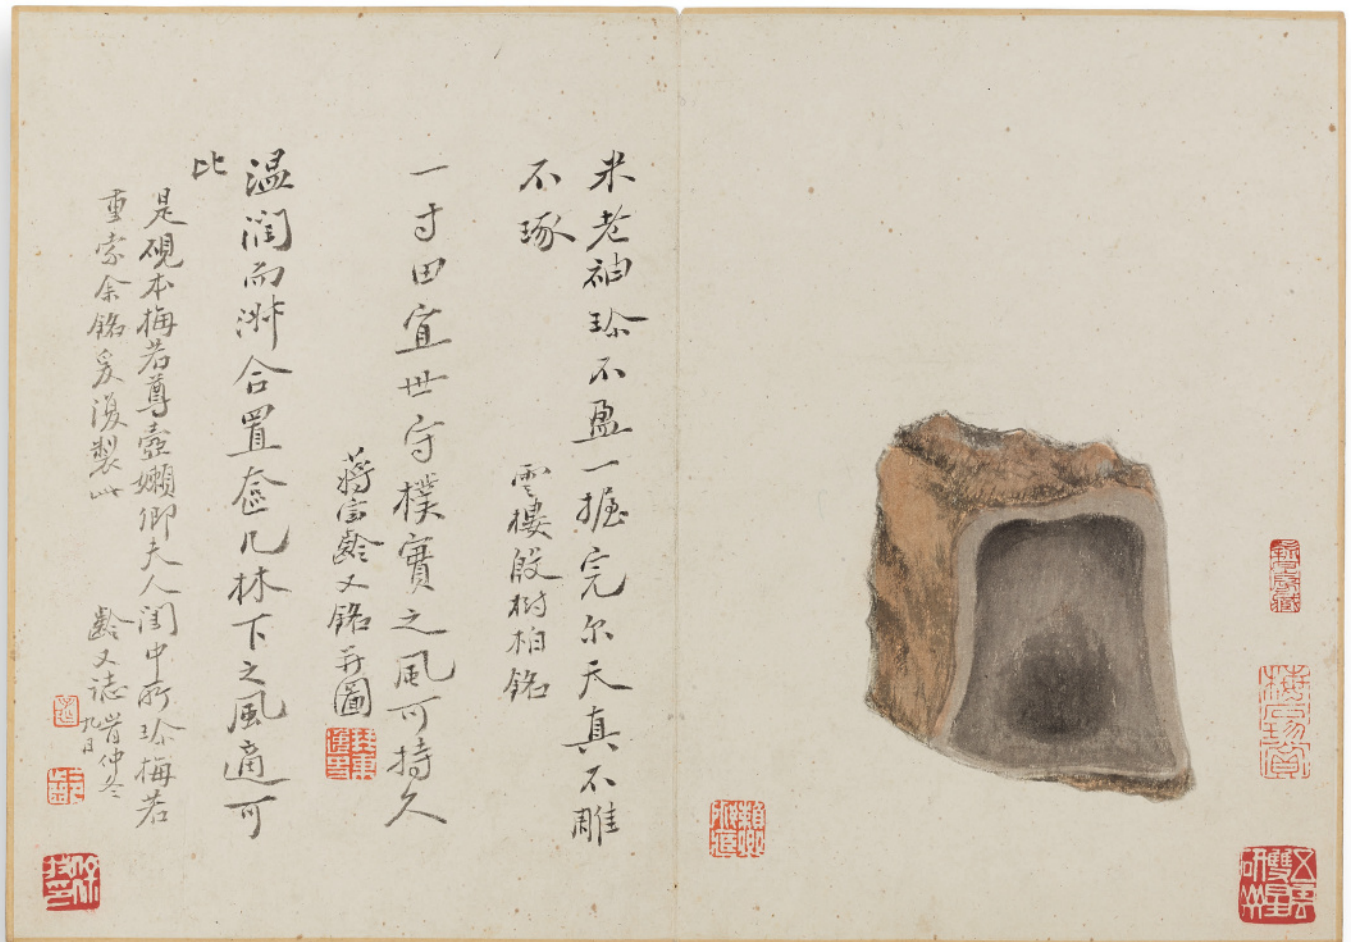 米老袖珍不盈一握完尔天真不雕
不琢
雲樓殷樹柏銘
一寸田宜世守樸實之風可持久
蔣寶齡又銘并圖
温潤而㴋合置奩几林下之風適可
比
是硯本梅若尊壺嬾卿夫人閨中所珍梅若
重索余銘爰復製此
齡又誌
仲冬
九日